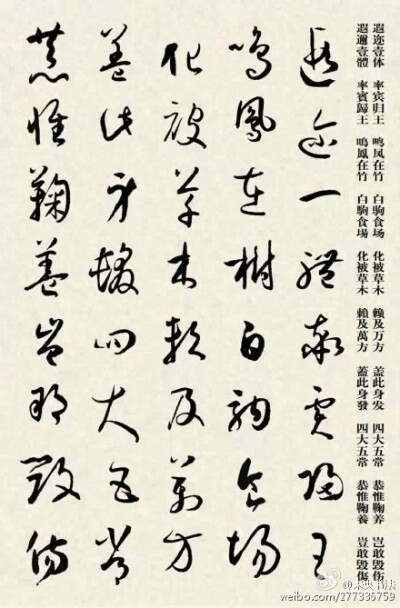 遐迩壹体 率宾归王 鸣凤在竹 白驹食场 化被草木 赖及万方 盖此身发 四大五常 恭惟鞠养 岂敢毁伤
遐邇壹體 率賓歸王 鳴鳳在竹 白駒食場 化被草木 賴及萬方 蓋此身發 四大五常 恭惟鞠養 豈敢毀傷
遐迩一體率賓歸王
鳴鳳在樹白駒食場
化被草木賴及萬方
蓋此身髮四大五常
恭惟鞠養豈敢毀傷
weibo.com/277336759